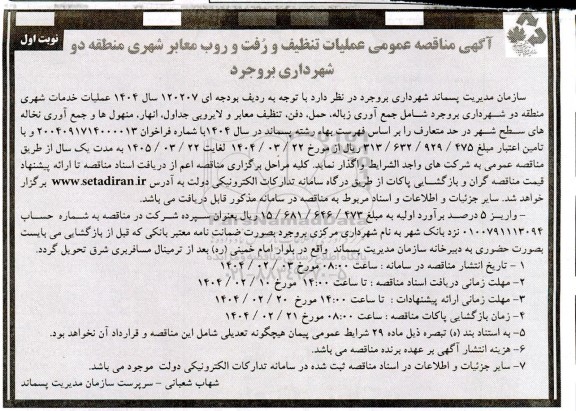 نوبت اول
آگهی مناقصه عمومی عملیات تنظیف و رُفت و روب معابر شهری منطقه دو
شهرداری بروجرد
سازمان مدیریت پسماند شهرداری بروجرد در نظر دارد با توجه به ردیف بودجه ای ۱۲۰۲۰۷ سال ۱۴۰۴ عملیات خدمات شهری
منطقه دو شهرداری بروجرد شامل جمع آوری زباله، حمل، دفن، تنظیف معابر و لایروبی جداول، انهار، منهول ها و جمع آوری نخاله
های سطح شهر در حد متعارف را بر اساس فهرست بهاء رشته پسماند در سال ۱۴۰۴با شماره فراخوان ۲۰۰۴۰۹۱۷۱۴۰۰۰۰۱۳ و با
تامین اعتبار مبلغ ۴۷۵ / ۹۲۹ / ۶۳۲ / ۳۱۳ ریال از مورخ ۲۲ / ۰۳ / ۱۴۰۴ لغایت ۲۲ / ۰۳ / ۱۴۰۵ به مدت یک سال از طریق
مناقصه عمومی به شرکت های واجد الشرایط واگذار نماید. کلیه مراحل برگزاری مناقصه اعم از دریافت اسناد مناقصه تا ارائه پیشنهاد
قیمت مناقصه گران و بازگشایی پاکات از طریق درگاه سامانه تدارکات الکترونیکی دولت به آدرس www.setadiran.ir برگزار
خواهد شد. سایر جزئیات و اطلاعات و اسناد مربوط به مناقصه در سامانه مذکور قابل دریافت می باشد.
- واریز ۵ درصد برآورد اولیه به مبلغ ۴۷۳ / ۶۴۶ / ۶۸۱ / ۱۵ ریال بعنوان سپرده شرکت در مناقصه به شماره حساب
۱۰۰۷۹۱۱۱۳۰۹۴ نزد بانک شهر به نام شهرداری مرکزی بروجرد بصورت ضمانت نامه معتبر بانکی که قبل از بازگشایی می بایست
بصورت حضوری به دبیرخانه سازمان مدیریت پسماند واقع در بلوار امام خمینی (ره) بعد از ترمینال مسافربری شرق تحویل گردد.
۱ - تاریخ انتشار مناقصه در سامانه : ساعت ۰۸:۰۰ مورخ ۰۳ / ۰۲ / ۱۴۰۴
۲- مهلت زمانی دریافت اسناد مناقصه : تا ساعت ۱۴:۰۰ مورخ ۱۰ / ۰۲ / ۱۴۰۴
۳- مهلت زمانی ارائه پیشنهادات : تا ساعت ۱۴:۰۰ مورخ ۲۰ / ۰۲ / ۱۴۰۴
۴- زمان بازگشایی پاکات مناقصه : ساعت ۰۸:۰۰ مورخ ۲۱ / ۰۲ / ۱۴۰۴
۵- به استناد بند (ه) تبصره ذیل ماده ۲۹ شرایط عمومی پیمان هیچگونه تعدیلی شامل این مناقصه و قرارداد آن نخواهد بود.
۶- هزینه انتشار آگهی بر عهده برنده مناقصه می باشد.
۷- سایر جزئیات و اطلاعات در اسناد مناقصه ثبت شده در سامانه تدارکات الکترونیکی دولت موجود می باشد.
شهاب شعبانی - سرپرست سازمان مدیریت پسماند